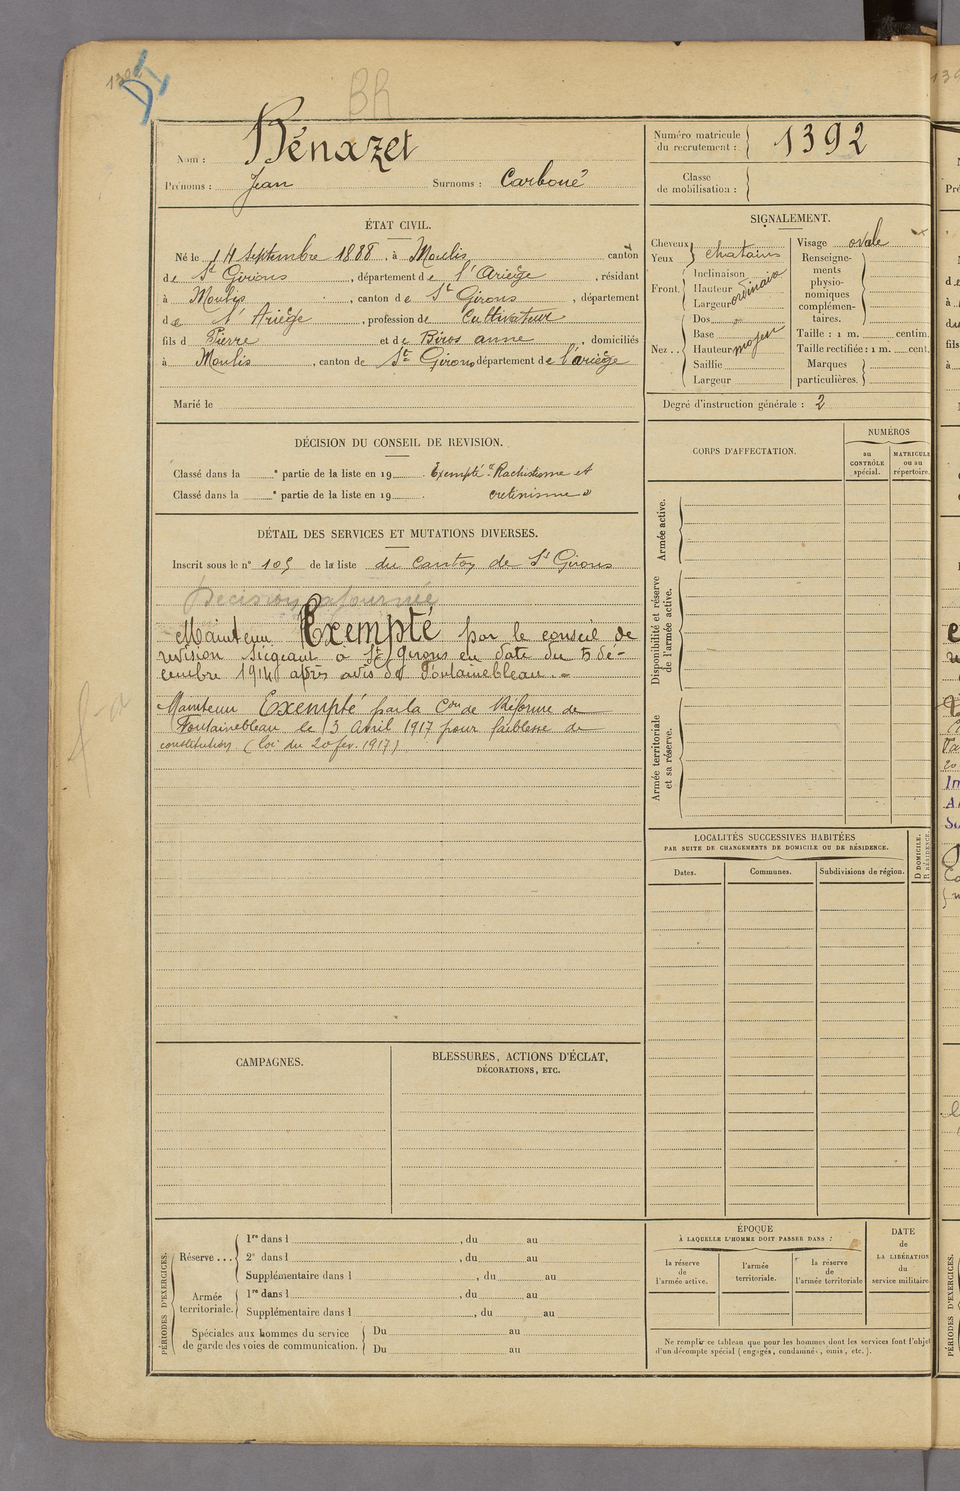 1392
DI
BR
Nom : Bénazet
Prénoms : Jean Surnoms : Carboué
Numéro matricule du recrutement : 1392
Classe de mobilisation :
ÉTAT CIVIL.
Né le 14 Septembre 1888, à Moulis canton
de St Girons, département de l'Ariège, résidant
à Moulis, canton de St Girons, département
de l'Ariège, profession de Cultivateur
fils d Pierre et de Biros anne, domiciliés
à Moulis, canton de St Girons département de l'ariège
Marié le
SIGNALEMENT.
Cheveux
Yeux
chatains
Front.
Inclinaison
Hauteur
Largeur
ordinaire
Nez..
Dos
Base
Hauteur
Saillie
Largeur
moyen
Visage ovale
Renseigne-
ments
physio-
nomiques
complémen-
taires.
Taille : 1 m. centim.
Taille rectifiée : 1 m. cent.
Marques
particulières.
Degré d'instruction générale : 2
DÉCISION DU CONSEIL DE REVISION.
Classé dans la e partie de la liste en 19 . Exempté "Rachitisme et
Classé dans la e partie de la liste en 19 . cretinisme"
DÉTAIL DES SERVICES ET MUTATIONS DIVERSES.
Inscrit sous le n° 105 de la liste du canton de St Girons
Décision ajournée
Maintenu Exempté par le conseil de
revision siégeant à St Girons en date du 5 dé-
cembre 1914 après avis de Fontainebleau.=
Maintenu Exempté par la Con de Réforme de
Fontainebleau le 3 Avril 1917 pour faiblesse de
constitution (loi du 20 fév. 1917)
CORPS D'AFFECTATION.
NUMÉROS
au
CONTRÔLE
spécial.
MATRICULE
ou au
répertoire.
Armée active.
Disponibilité et réserve
de l'armée active.
Armée territoriale
et sa réserve.
LOCALITÉS SUCCESSIVES HABITÉES
PAR SUITE DE CHANGEMENTS DE DOMICILE OU DE RÉSIDENCE.
Dates.
Communes.
Subdivisions de région.
D DOMICILE.
R RÉSIDENCE.
CAMPAGNES.
BLESSURES, ACTIONS D'ÉCLAT,
DÉCORATIONS, ETC.
PÉRIODES D'EXERCICES.
Réserve...
1re dans l , du au
2e dans l , du au
Supplémentaire dans l , du au
Armée
territoriale.
1re dans l , du au
Supplémentaire dans l , du au
Spéciales aux hommes du service
de garde des voies de communication.
Du au
Du au
ÉPOQUE
À LAQUELLE L'HOMME DOIT PASSER DANS :
la réserve
de
l'armée active.
l'armée
territoriale.
la réserve
de
l'armée territoriale
DATE
de
LA LIBÉRATION
du
service militaire
Ne remplir ce tableau que pour les hommes dont les services font l'objet
d'un décompte spécial (engagés, condamnés, omis, etc.).